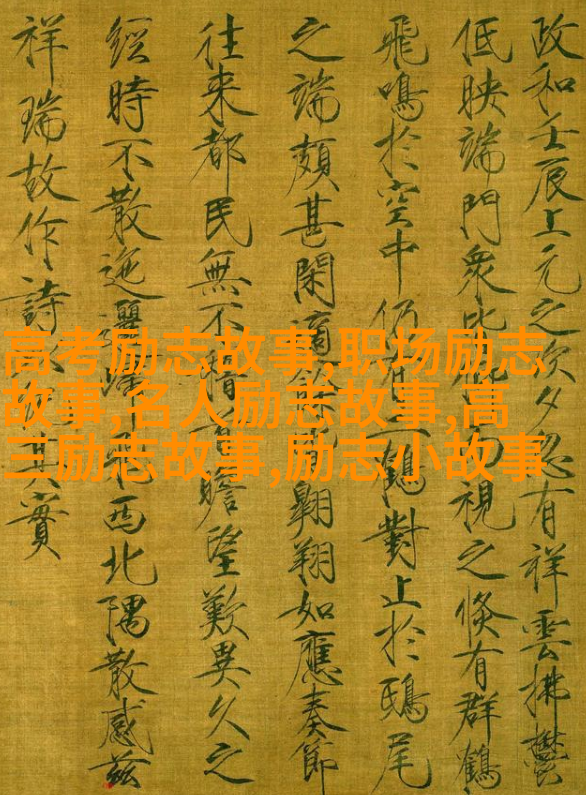 政和壬辰上元之次夕忽有祥雲拂鬱
低映端門眾視之倏有群鶴
飛鳴於空中仍鶴對止於鴟尾
之端頗甚閑適翱翔如應奏節
往來都民無不瞻望歎異久之
經時不散迤邐歸西北隅散感茲
祥瑞故作詩其實
高考励志故事,职场励志
故事,名人励志故事,高
三励志故事,励志小故事